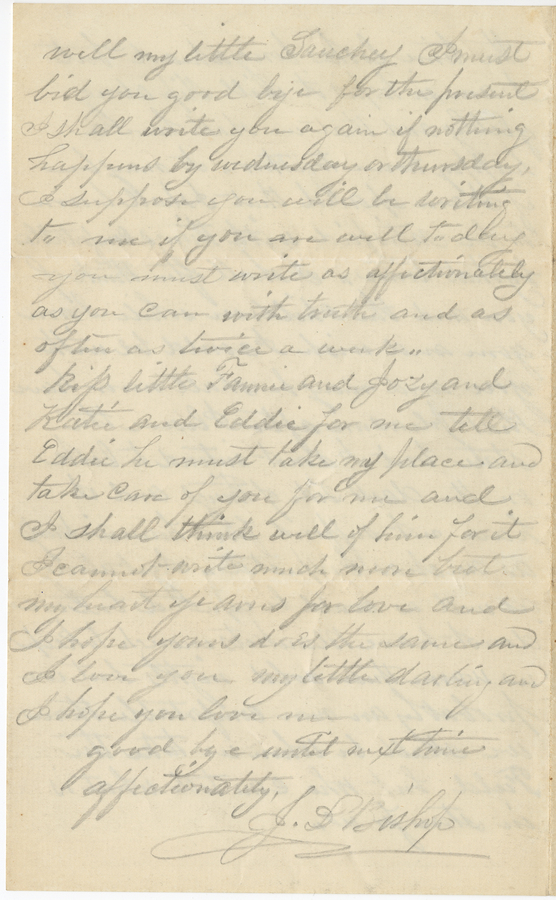 well my little Sauchey I must
bid you good bye for the present
I shall write you again if nothing
happens by wednesday or thursday,
I suppose you will be writing
to" me if you are well to"day
you must write as affectionately
as you can with truth and as
often as twice a week"
Kiss little Fannie and Jozy and
Katie and Eddie for me tell
Eddie he must take my place and
take care of you for me and
I shall think well of him for it
I cannot write much more but
my heart yearns for love and
I hope yours does the same and
I love you my little darling and
I hope you love me
good bye until next time
affectionately,
J. D Bishop